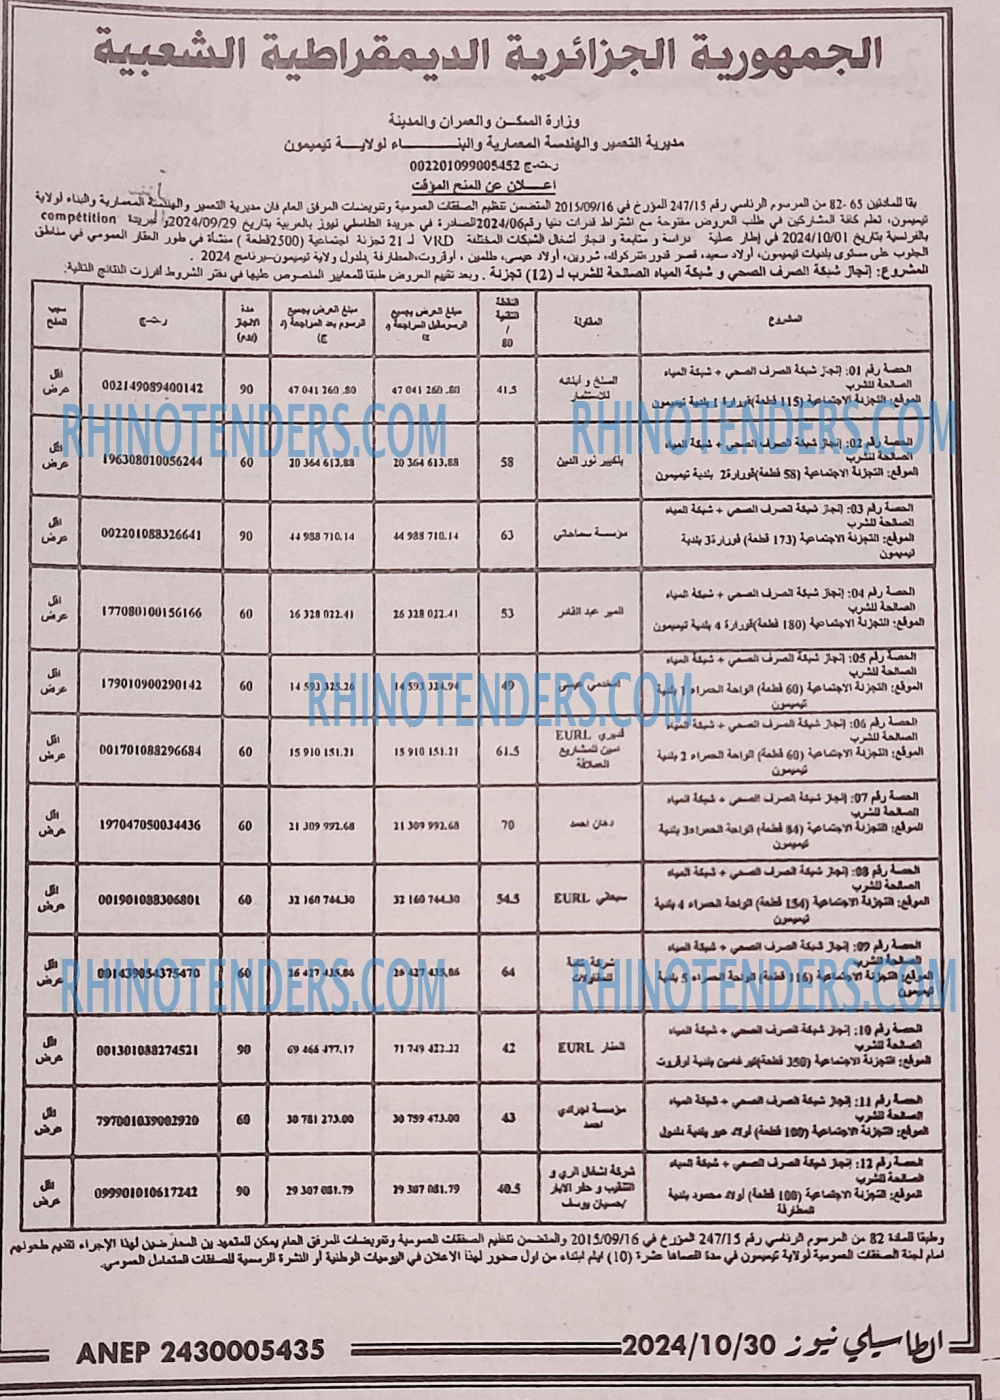 الجمهورية الجزائرية الديمقراطية الشعبية
وزارة السكن والعمران والمدينة
مديرية التعمير والهندسة المعمارية والبناء لولاية تيميمون
ر-ت-ج 002201099005452
اعلان عن المنح المؤقت
بقا للمادتين 65 -82 من المرسوم الرئاسي رقم 247/15 المؤرخ في 2015/09/16 المتضمن تنظيم الصفقات العمومية وتفويضات المرفق العام فان مديرية التعمير والهندسة المعمارية والبناء لولاية
تيميمون، تعلم كافة المشاركين في طلب العروض مفتوحة مع اشتراط قدرات دنيا رقم 2024/06 الصادرة في جريدة الطاسلي نيوز بالعربية بتاريخ 2024/09/29 وجريدة compétition
بالفرنسية بتاريخ 2024/10/01 في إطار عملية دراسة و متابعة و انجاز أشغال الشبكات المختلفة VRD لـ 21 تجزئة اجتماعية (2500 قطعة) منشأة في طور العقار العمومي في مناطق
الجنوب على مستوى بلديات تيميمون، أولاد سعيد، قصر قدور، تنركوك، شروين، أولاد عيسى، طلمين ، أوقروت، المطارفة ,دلدول ولاية تيميمون–برنامج 2024 .
المشروع: إنجاز شبكة الصرف الصحي و شبكة المياه الصالحة للشرب لـ (12) تجزئة . وبعد تقييم العروض طبقا للمعايير المنصوص عليها في دفتر الشروط أفرزت النتائج التالية:
المشروع
المقاولة
النقطة التقنية / 80
مبلغ العرض بجميع الرسوم قبل المراجعة (د ج)
مبلغ العرض بجميع الرسوم بعد المراجعة (د ج)
مدة الانجاز (يوم)
ر-ت-ج
سبب المنح
الحصة رقم 01: إنجاز شبكة الصرف الصحي + شبكة المياه
الصالحة للشرب
الموقع: التجزئة الاجتماعية (115 قطعة) قورارة 1 بلدية تيميمون
و أبنائه للاستثمار
41.5
47 041 260 .80
47 041 260 .80
90
002149089400142
اقل عرض
الحصة رقم 02: إنجاز شبكة الصرف الصحي + شبكة المياه
الصالحة للشرب
الموقع: التجزئة الاجتماعية (58 قطعة) قورارة 2 بلدية تيميمون
بلكبير نور الدين
58
20 364 613.88
20 364 613.88
60
196308010056244
اقل عرض
الحصة رقم 03: إنجاز شبكة الصرف الصحي + شبكة المياه
الصالحة للشرب
الموقع: التجزئة الاجتماعية (173 قطعة) قورارة 3 بلدية
تيميمون
مؤسسة سماحاني
63
44 988 710.14
44 988 710.14
90
002201088326641
اقل عرض
الحصة رقم 04: إنجاز شبكة الصرف الصحي + شبكة المياه
الصالحة للشرب
الموقع: التجزئة الاجتماعية (180 قطعة) قورارة 4 بلدية تيميمون
المير عبد القادر
53
26 328 022.41
26 328 022.41
60
177080100156166
اقل عرض
الحصة رقم 05: إنجاز شبكة الصرف الصحي + شبكة المياه
الصالحة للشرب
الموقع: التجزئة الاجتماعية (60 قطعة) الواحة الحمراء 1 بلدية
تيميمون
عيسى
49
14 593 324.94
14 593 325.26
60
179010900290142
اقل عرض
الحصة رقم 06: إنجاز شبكة الصرف الصحي + شبكة المياه
الصالحة للشرب
الموقع: التجزئة الاجتماعية (60 قطعة) الواحة الحمراء 2 بلدية
تيميمون
EURL قديري
امين للمشاريع
العملاقة
61.5
15 910 151.21
15 910 151.21
60
001701088296684
اقل عرض
الحصة رقم 07: إنجاز شبكة الصرف الصحي + شبكة المياه
الصالحة للشرب
الموقع: التجزئة الاجتماعية (84 قطعة) الواحة الحمراء 3 بلدية
تيميمون
دهان احمد
70
21 309 992.68
21 309 992.68
60
197047050034436
اقل عرض
الحصة رقم 08: إنجاز شبكة الصرف الصحي + شبكة المياه
الصالحة للشرب
الموقع: التجزئة الاجتماعية (154 قطعة) الواحة الحمراء 4 بلدية
تيميمون
EURL سبحاني
54.5
32 160 744.30
32 160 744.30
60
001901088306801
اقل عرض
الحصة رقم 09: إنجاز شبكة الصرف الصحي + شبكة المياه
الصالحة للشرب
الموقع: التجزئة الاجتماعية (116 قطعة) الواحة الحمراء 5 بلدية
تيميمون
شركة
للمقاولات
64
26 427 435.86
26 427 435.86
60
001439054375470
اقل عرض
الحصة رقم 10: إنجاز شبكة الصرف الصحي + شبكة المياه
الصالحة للشرب
الموقع: التجزئة الاجتماعية (350 قطعة) بلدية أوقروت
EURL
42
71 749 422.22
69 466 477.17
90
001301088274521
اقل عرض
الحصة رقم 11: إنجاز شبكة الصرف الصحي + شبكة المياه
الصالحة للشرب
الموقع: التجزئة الاجتماعية (100 قطعة) أولاد عبو بلدية دلدول
مؤسسة نجرادي
احمد
43
30 759 473.00
30 781 273.00
60
797001039002920
اقل عرض
الحصة رقم 12: إنجاز شبكة الصرف الصحي + شبكة المياه
الصالحة للشرب
الموقع: التجزئة الاجتماعية (100 قطعة) أولاد محمود بلدية
المطارفة
شركة اشغال الري و
التنقيب و حفر الابار
/حسيان يوسف
40.5
29 307 081.79
29 307 081.79
90
099901010617242
اقل عرض
وطبقا للمادة 82 من المرسوم الرئاسي رقم 247/15 المؤرخ في 2015/09/16 والمتضمن تنظيم الصفقات العمومية وتفويضات المرفق العام يمكن للمتعهدين المعارضين لهذا الإجراء تقديم طعونهم
امام لجنة الصفقات العمومية لولاية تيميمون في مدة اقصاها عشرة (10) ايام ابتداء من اول صدور لهذا الاعلان في اليوميات الوطنية أو النشرة الرسمية للصفقات المتعامل العمومي.
الطاسيلي نيوز 2024/10/30
ANEP 2430005435
RHINOTENDERS.COM
RHINOTENDERS.COM
RHINOTENDERS.COM
RHINOTENDERS.COM
RHINOTENDERS.COM